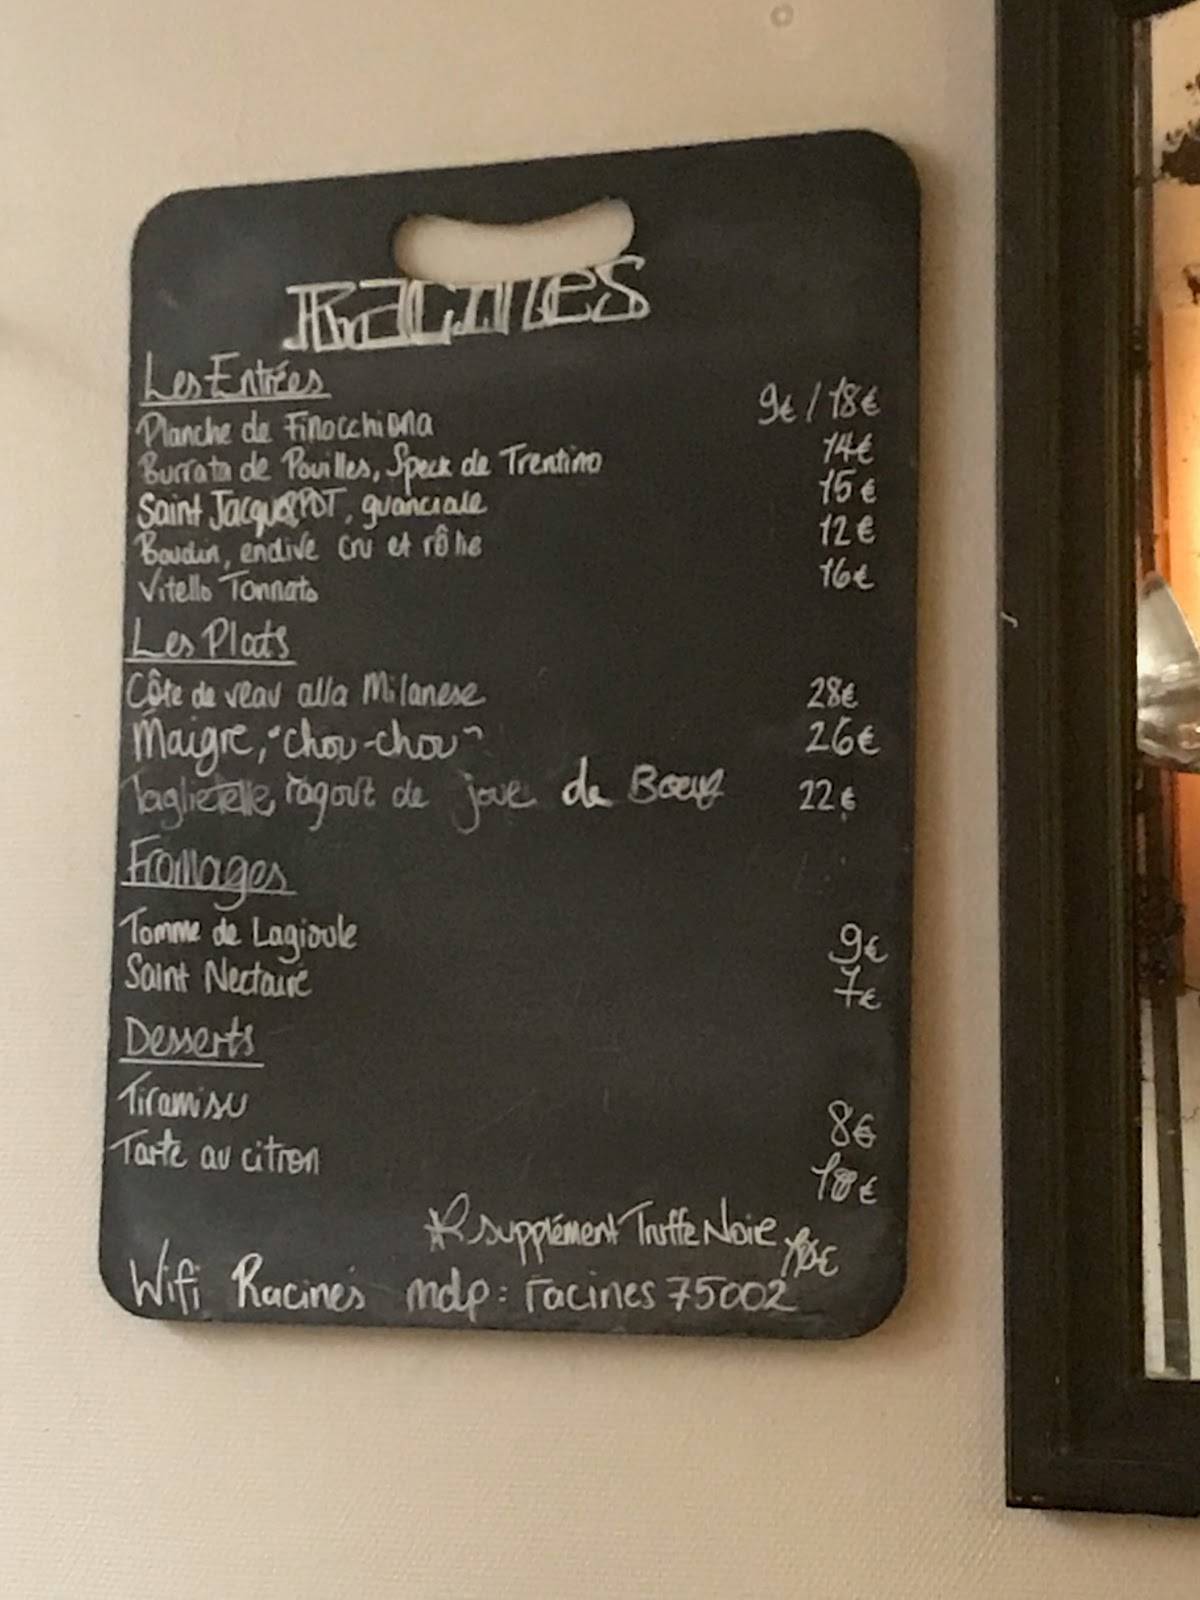 Racines
Les Entrées
Planche de Finocchiona 9€ / 18€
Burrata de Pouilles, Speck de Trentino 14€
Saint Jacques PDT, guanciale 15€
Boudin, endive cru et rôtie 12€
Vitello Tonnato 16€
Les Plats
Côte de veau alla Milanese 28€
Maigre, "chou-chou" 26€
Taglietelle, ragout de joue de Bœuf 22€
Fromages
Tomme de Lagioule 9€
Saint Nectaire 7€
Desserts
Tiramisu 8€
Tarte au citron
supplément Truffe Noire
Wifi Racines mdp: racines75002